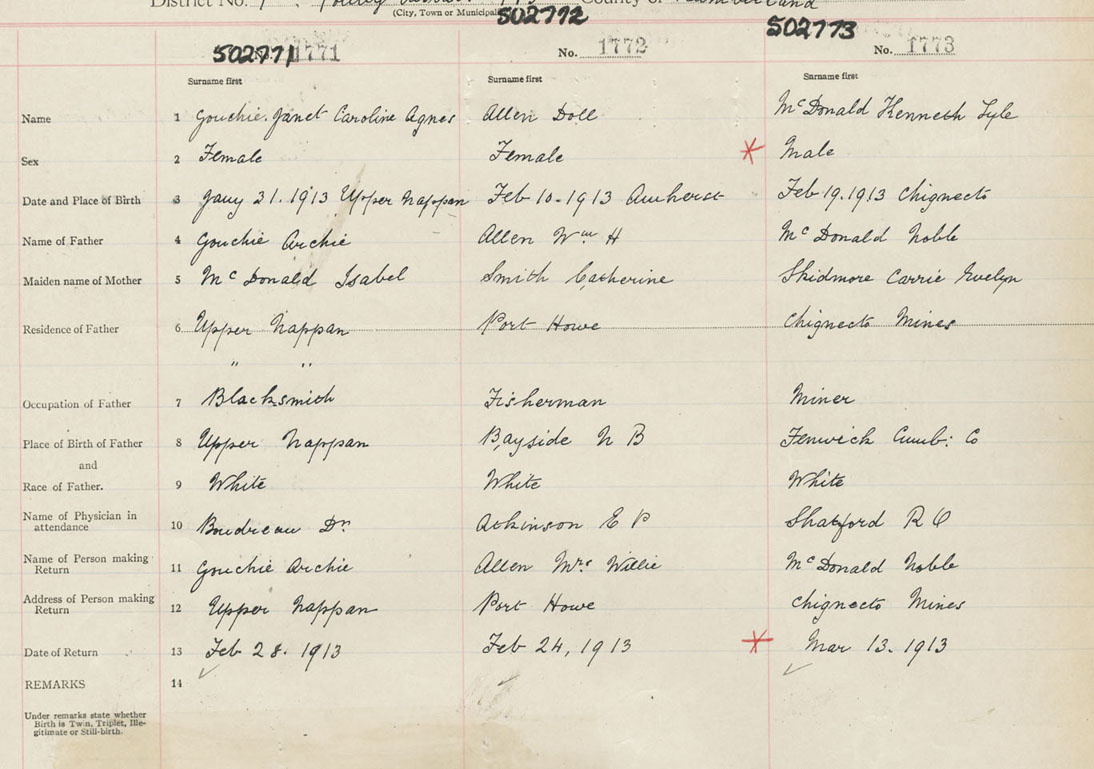 District No. County of Cumberland
(City, Town or Municipality
502771 1771
502772
No. 1772
502773
No. 1773
Surname first Surname first Surname first
Name 1 Gouchie. Janet Caroline Agnes Allen Doll McDonald Kenneth Lyle
Sex 2 Female Female * Male
Date and Place of Birth 3 Jany 31. 1913 Upper Nappan Feb 10-1913 Amherst Feb 19.1913 Chignecto
Name of Father 4 Gouchie Archie Allen Wm H McDonald Noble
Maiden name of Mother 5 McDonald Isabel Smith Catherine Skidmore Carrie Evelyn
Residence of Father 6 Upper Nappan Port Howe Chignecto Mines
" "
Occupation of Father 7 Blacksmith Fisherman Miner
Place of Birth of Father 8 Upper Nappan Bayside N B Fenwick Cumb: Co
and
Race of Father. 9 White White White
Name of Physician in
attendance 10 Boudreau Dr. Atkinson E P Shatford R O
Name of Person making
Return 11 Gouchie Archie Allen Mrs Willie McDonald Noble
Address of Person making
Return 12 Upper Nappan Port Howe Chignecto Mines
Date of Return 13 Feb 28. 1913 Feb 24, 1913 * Mar 13. 1913
REMARKS 14
Under remarks state whether
Birth is Twin, Triplet, Ille-
gitimate or Still-birth.